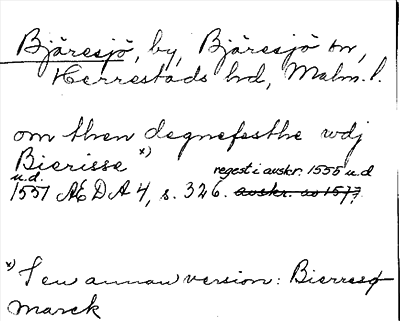 Bjäresjö, by, Bjäresjö sn,
Herrestads hd, Malm. l.
om then degnefesthe wdj
Bierisse x)
u.d. regest i avskr. 1555 u.d
1551 ÆDA 4, s. 326. avskr. av 1577
x) I en annan version: Bierresø
marck